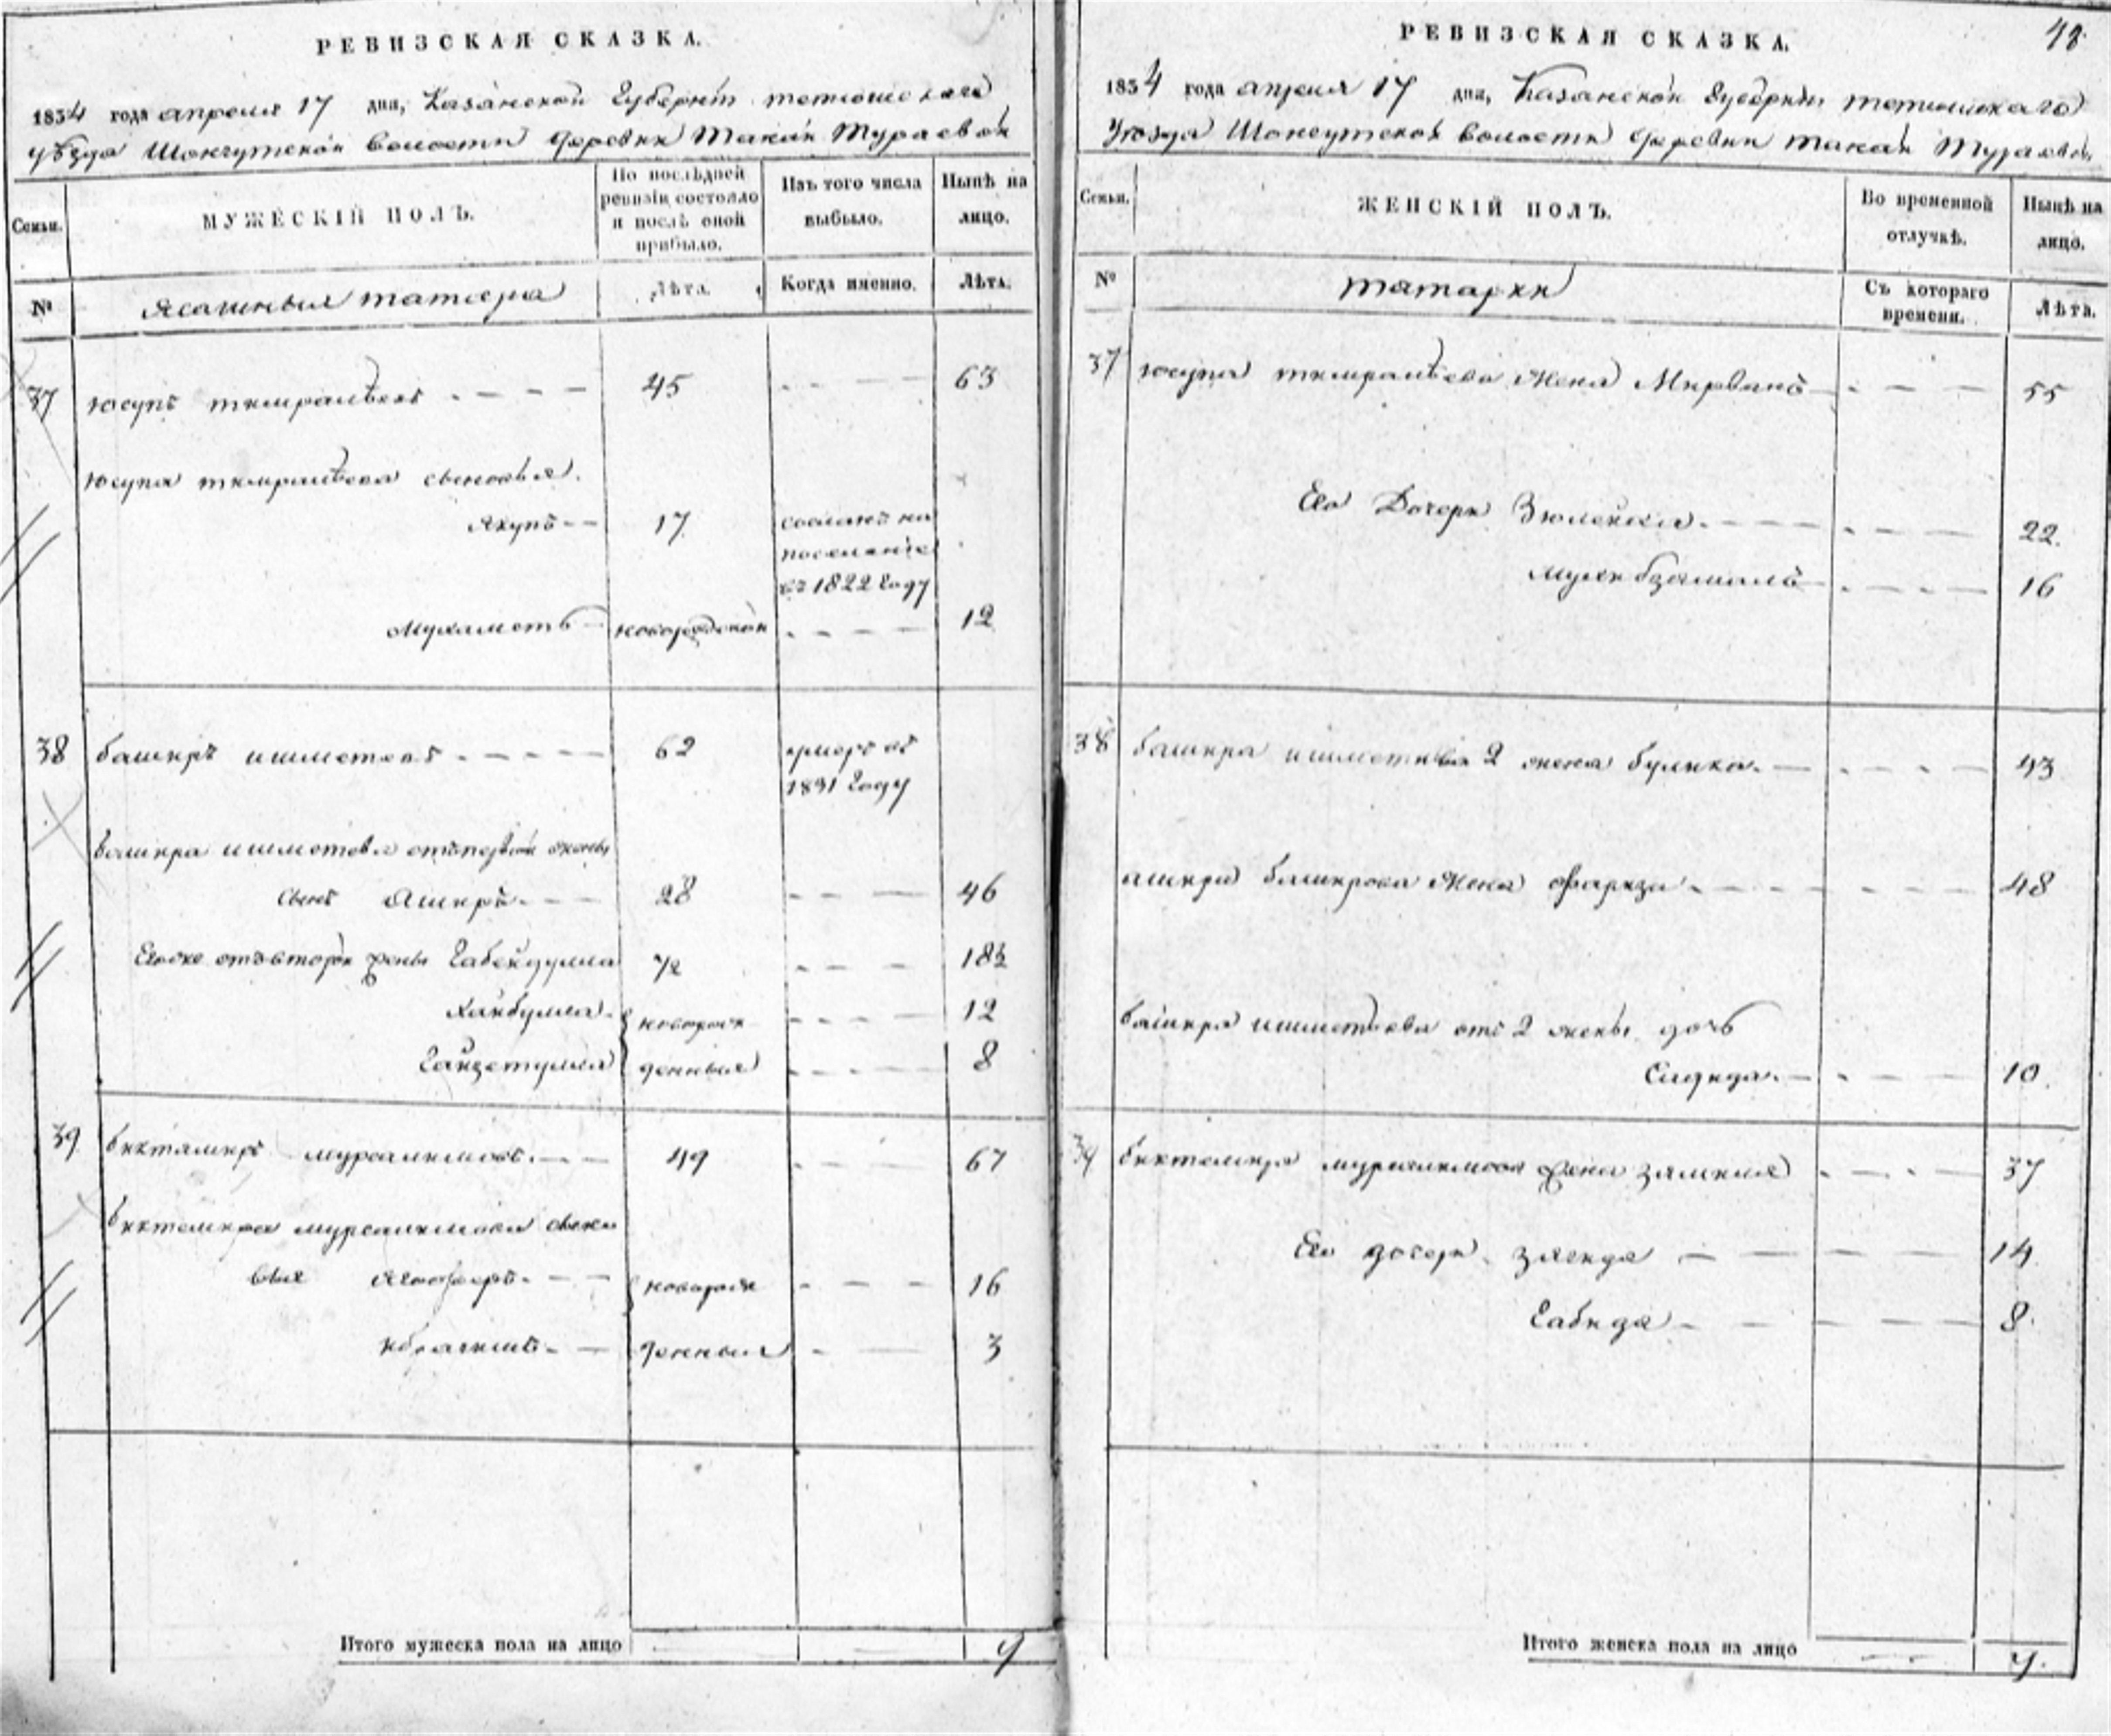 РЕВИЗСКАЯ СКАЗКА.
1834 года апреля 17 дня, Казанской Губернiи тетюшскаго
уѣзда Шонгутской волости деревни Такай Тураевой
Семьи.
МУЖЕСКIЙ ПОЛЪ.
По послѣдней ревизiи состояло и послѣ оной прибыло.
Изъ того числа выбыло.
Нынѣ на лицо.
№
Ясашныя татера
Лѣта.
Когда именно.
Лѣта.
37 юсупъ - - - 45 - - - 63
юсупа сыновья.
Якупъ - - 17 сосланъ на
поселенiе
въ 1822 году
Мухаметъ - новорожденой - - - 12
38 башкръ ишметевъ - - - - 62 умеръ въ
1831 году
башкра ишметева отъ первой жены
сынъ Ашкръ - - - 28 - - - 46
Егоже отъ второй жены Габейдулла 1/2 - - - 18 1/2
Хайбулла новорож - - - - 12
денныя - - - - 8
39 биктемиръ мурсалимовъ - - - 49 - - - 67
биктемира мурсалимова сыно
вья - - новорож - - - 16
ибрагимъ - - денныя - - 3
Итого мужеска пола на лицо 9
РЕВИЗСКАЯ СКАЗКА.
48
1834 года апреля 17 дня, Казанской Губернiи тетюшскаго
уѣзда Шонгутской волости деревни такай Тураевой
Семьи.
ЖЕНСКIЙ ПОЛЪ.
Во временной отлучкѣ.
Нынѣ на лицо.
№
татарки
Съ котораго времени.
Лѣта.
37 юсупа жена - - - 55
Его Дочери Зюлейха - - - 22.
- - - 16
38 башкра ишметева 2 жена - - - 43
ашкра башкрова жена Фариза - - - 48
башкра ишметьева отъ 2 жены дочь
Сагида. - - - 10.
39 биктемира мурсалимова жена - - - 37
Его дочери - - - 14
Габида - - - 8.
Итого женска пола на лицо 9.